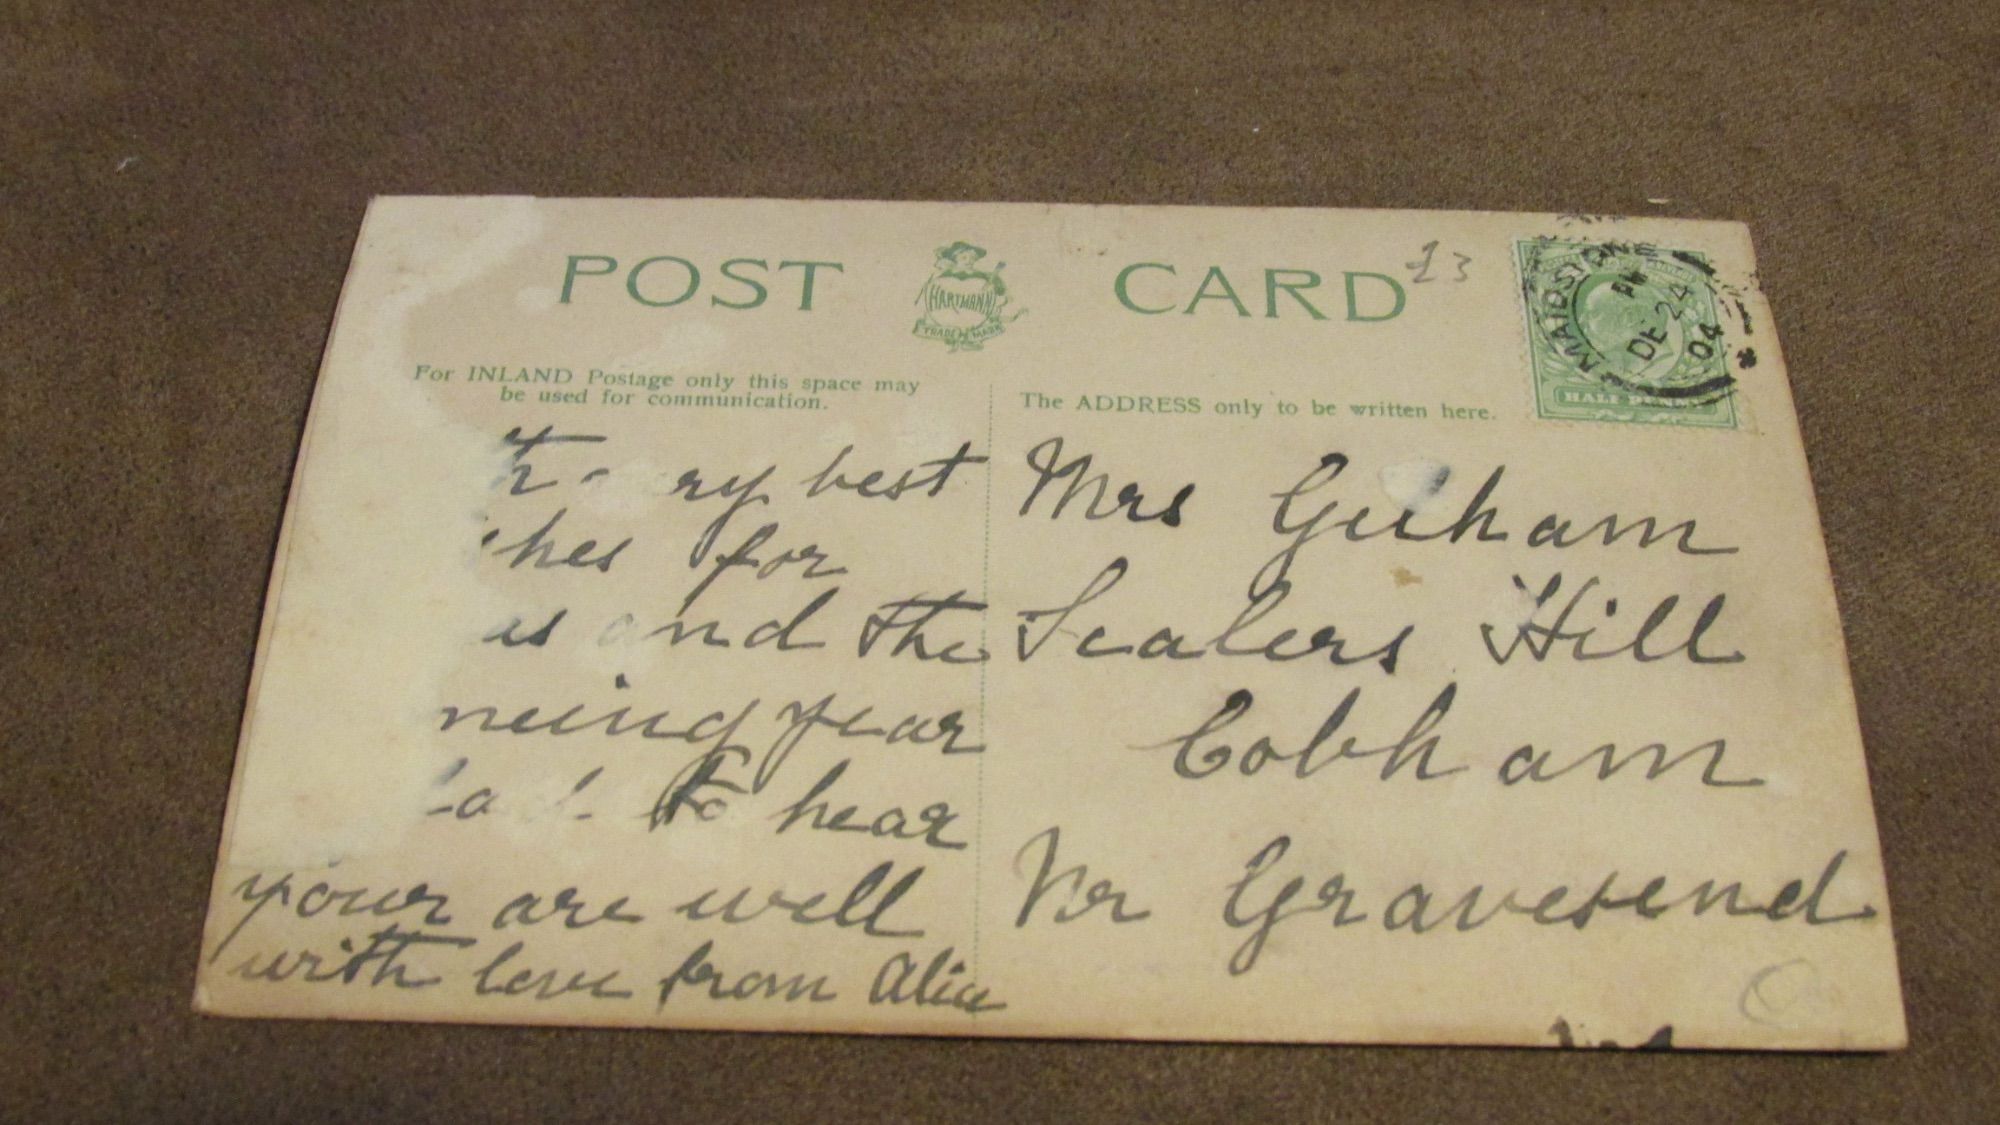 POST CARD
£3
HARTMANN
TRADE MARK
MAIDSTONE
DE 24
04
HALF PENNY
For INLAND Postage only this space may
be used for communication.
The ADDRESS only to be written here.
best
hes for
and the
year
to hear
your are well
with love from Alice
Mrs
Scalers Hill
Cobham
Nr Gravesend